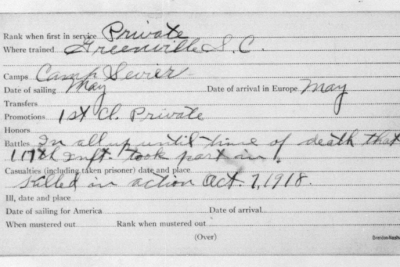 Rank when first in service Private
Where trained Greenville S.C.
Camps Camp Sevier
Date of sailing May Date of arrival in Europe May
Transfers
Promotions 1st Cl. Private
Honors
Battles In all up until time of death that
117th Inft. took part in.
Casualties (including taken prisoner) date and place
Killed in action Oct. 7, 1918.
Ill, date and place
Date of sailing for America Date of arrival.
When mustered out Rank when mustered out
(Over)